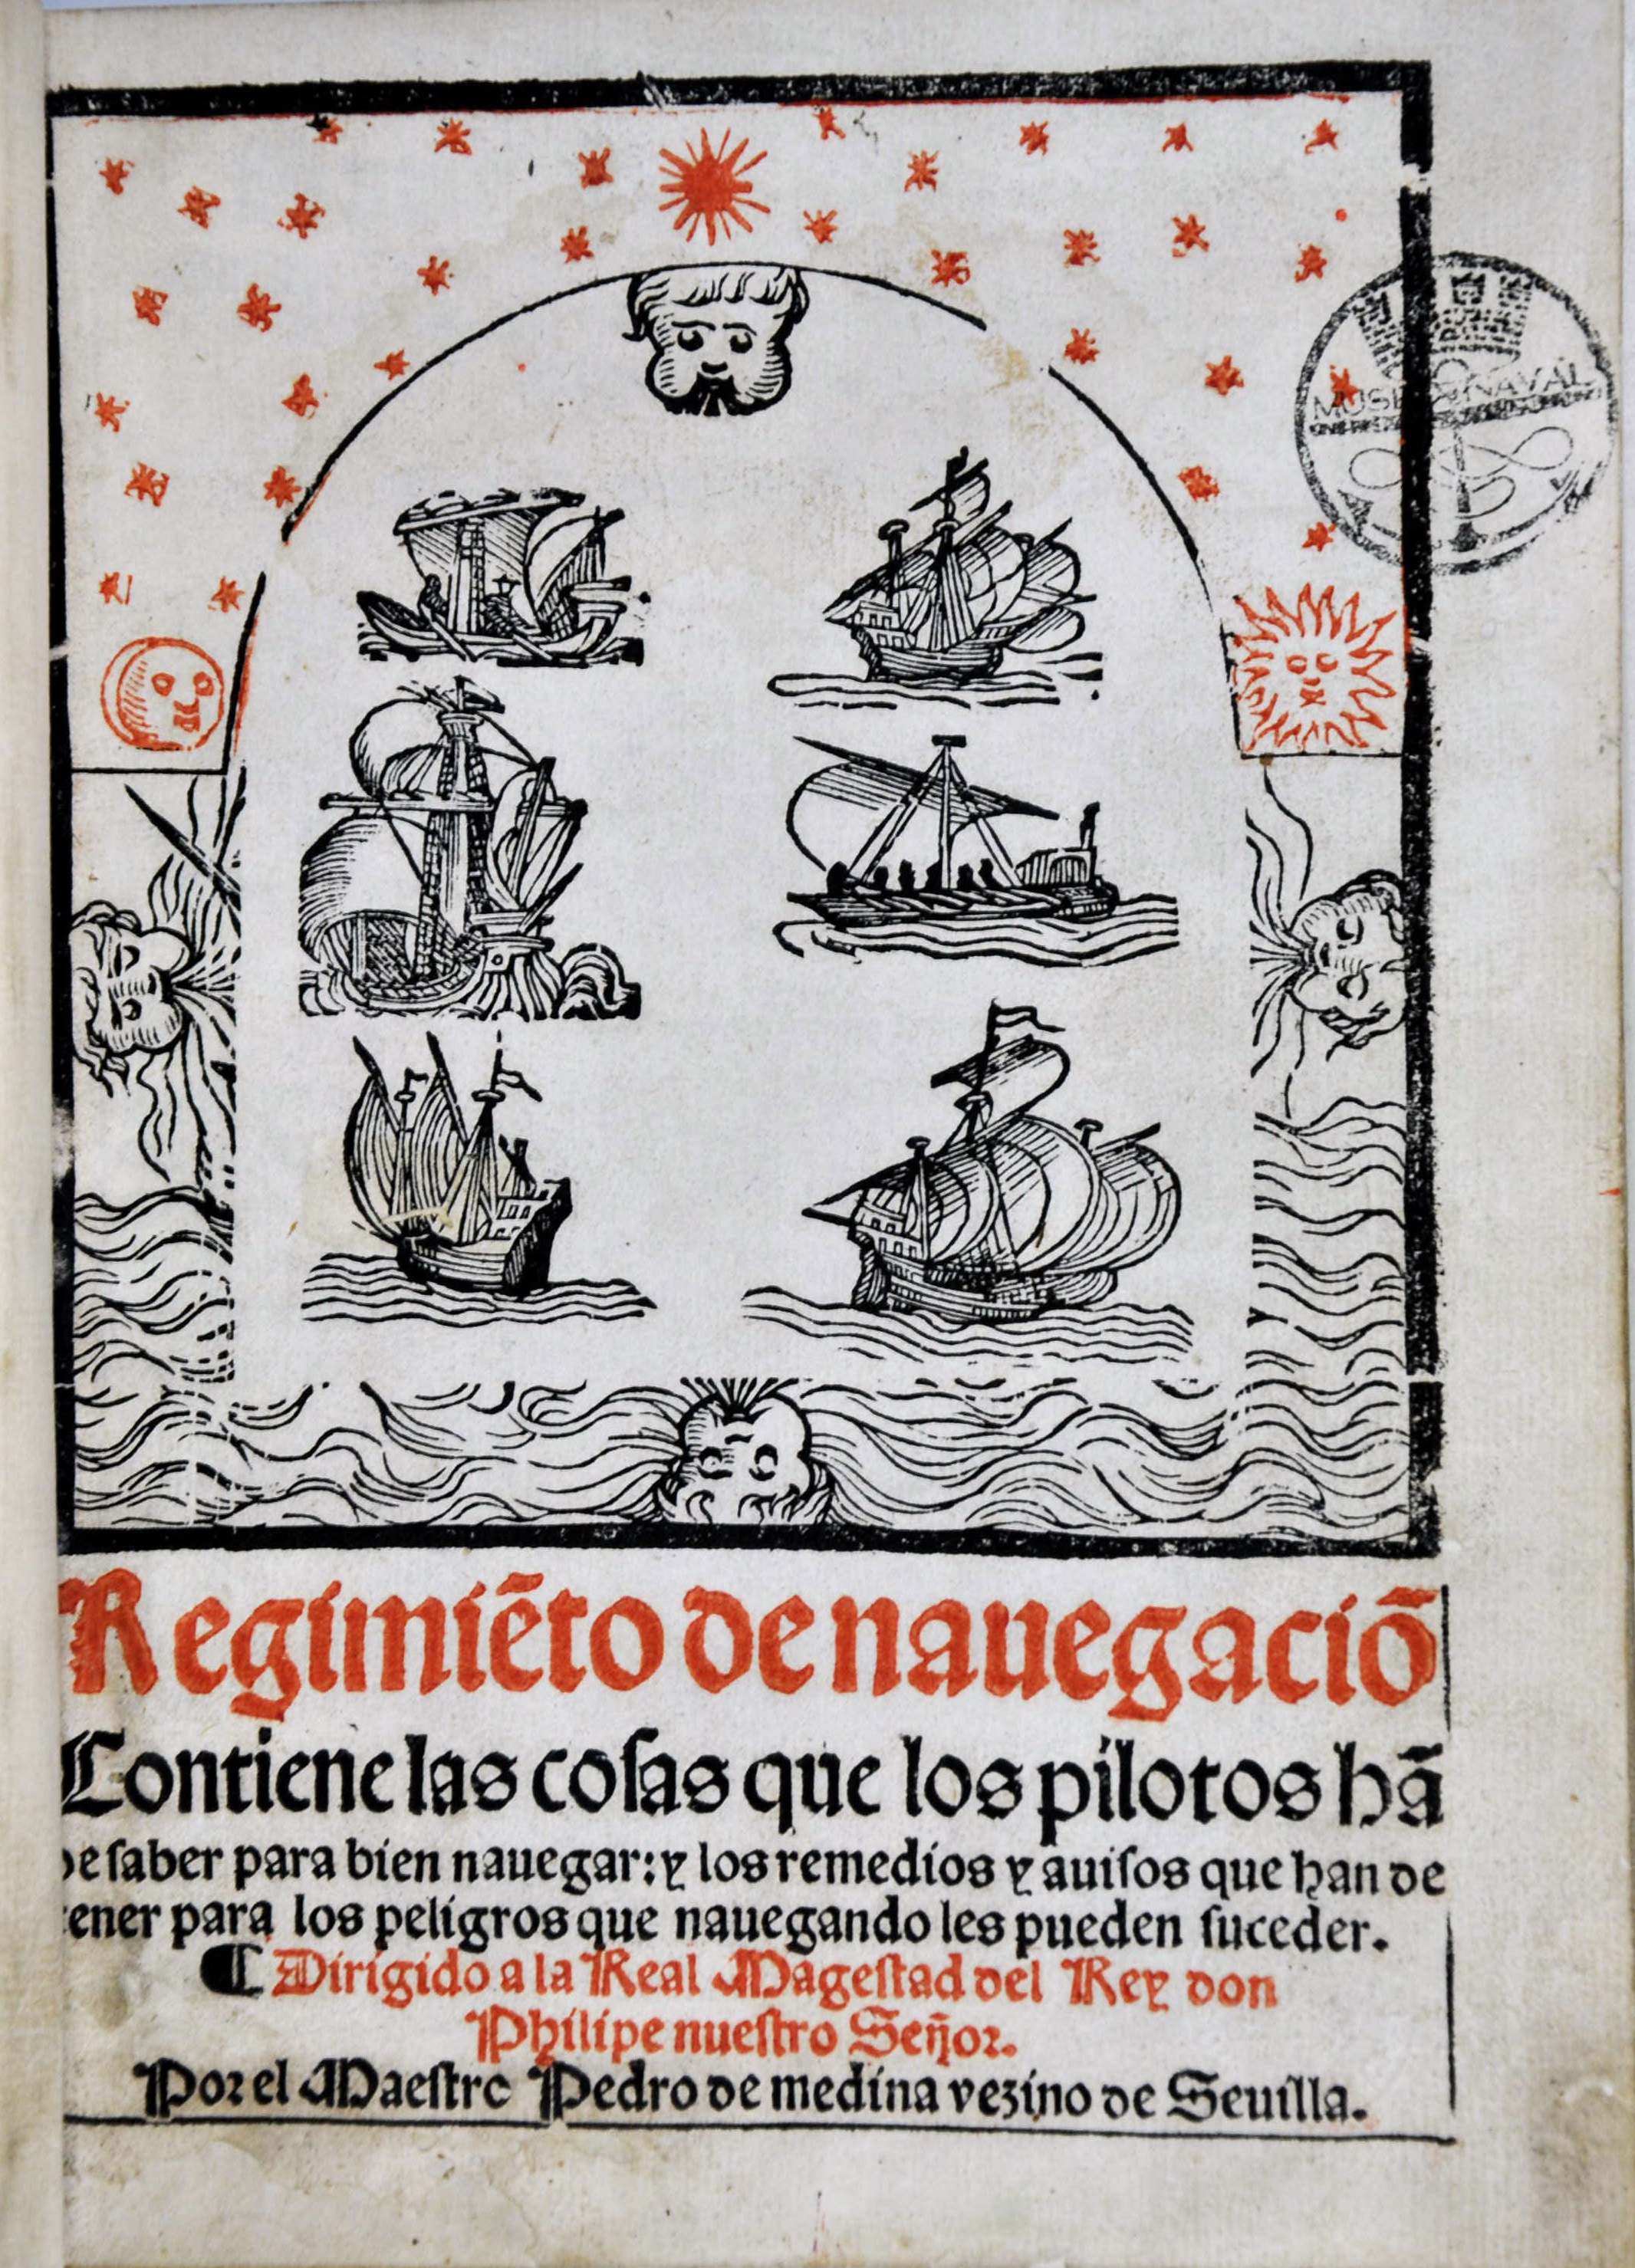 MUSEO NAVAL
Regimiẽto de nauegaciõ
Contiene las coſas que los pilotos hã
de ſaber para bien nauegar: y los remedios y auiſos que han de
tener para los peligros que nauegando les pueden ſuceder.
¶ Dirigido a la Real Mageſtad del Rey don
Philipe nueſtro Señor.
Por el Maeſtro Pedro de medina vezino de Seuilla.